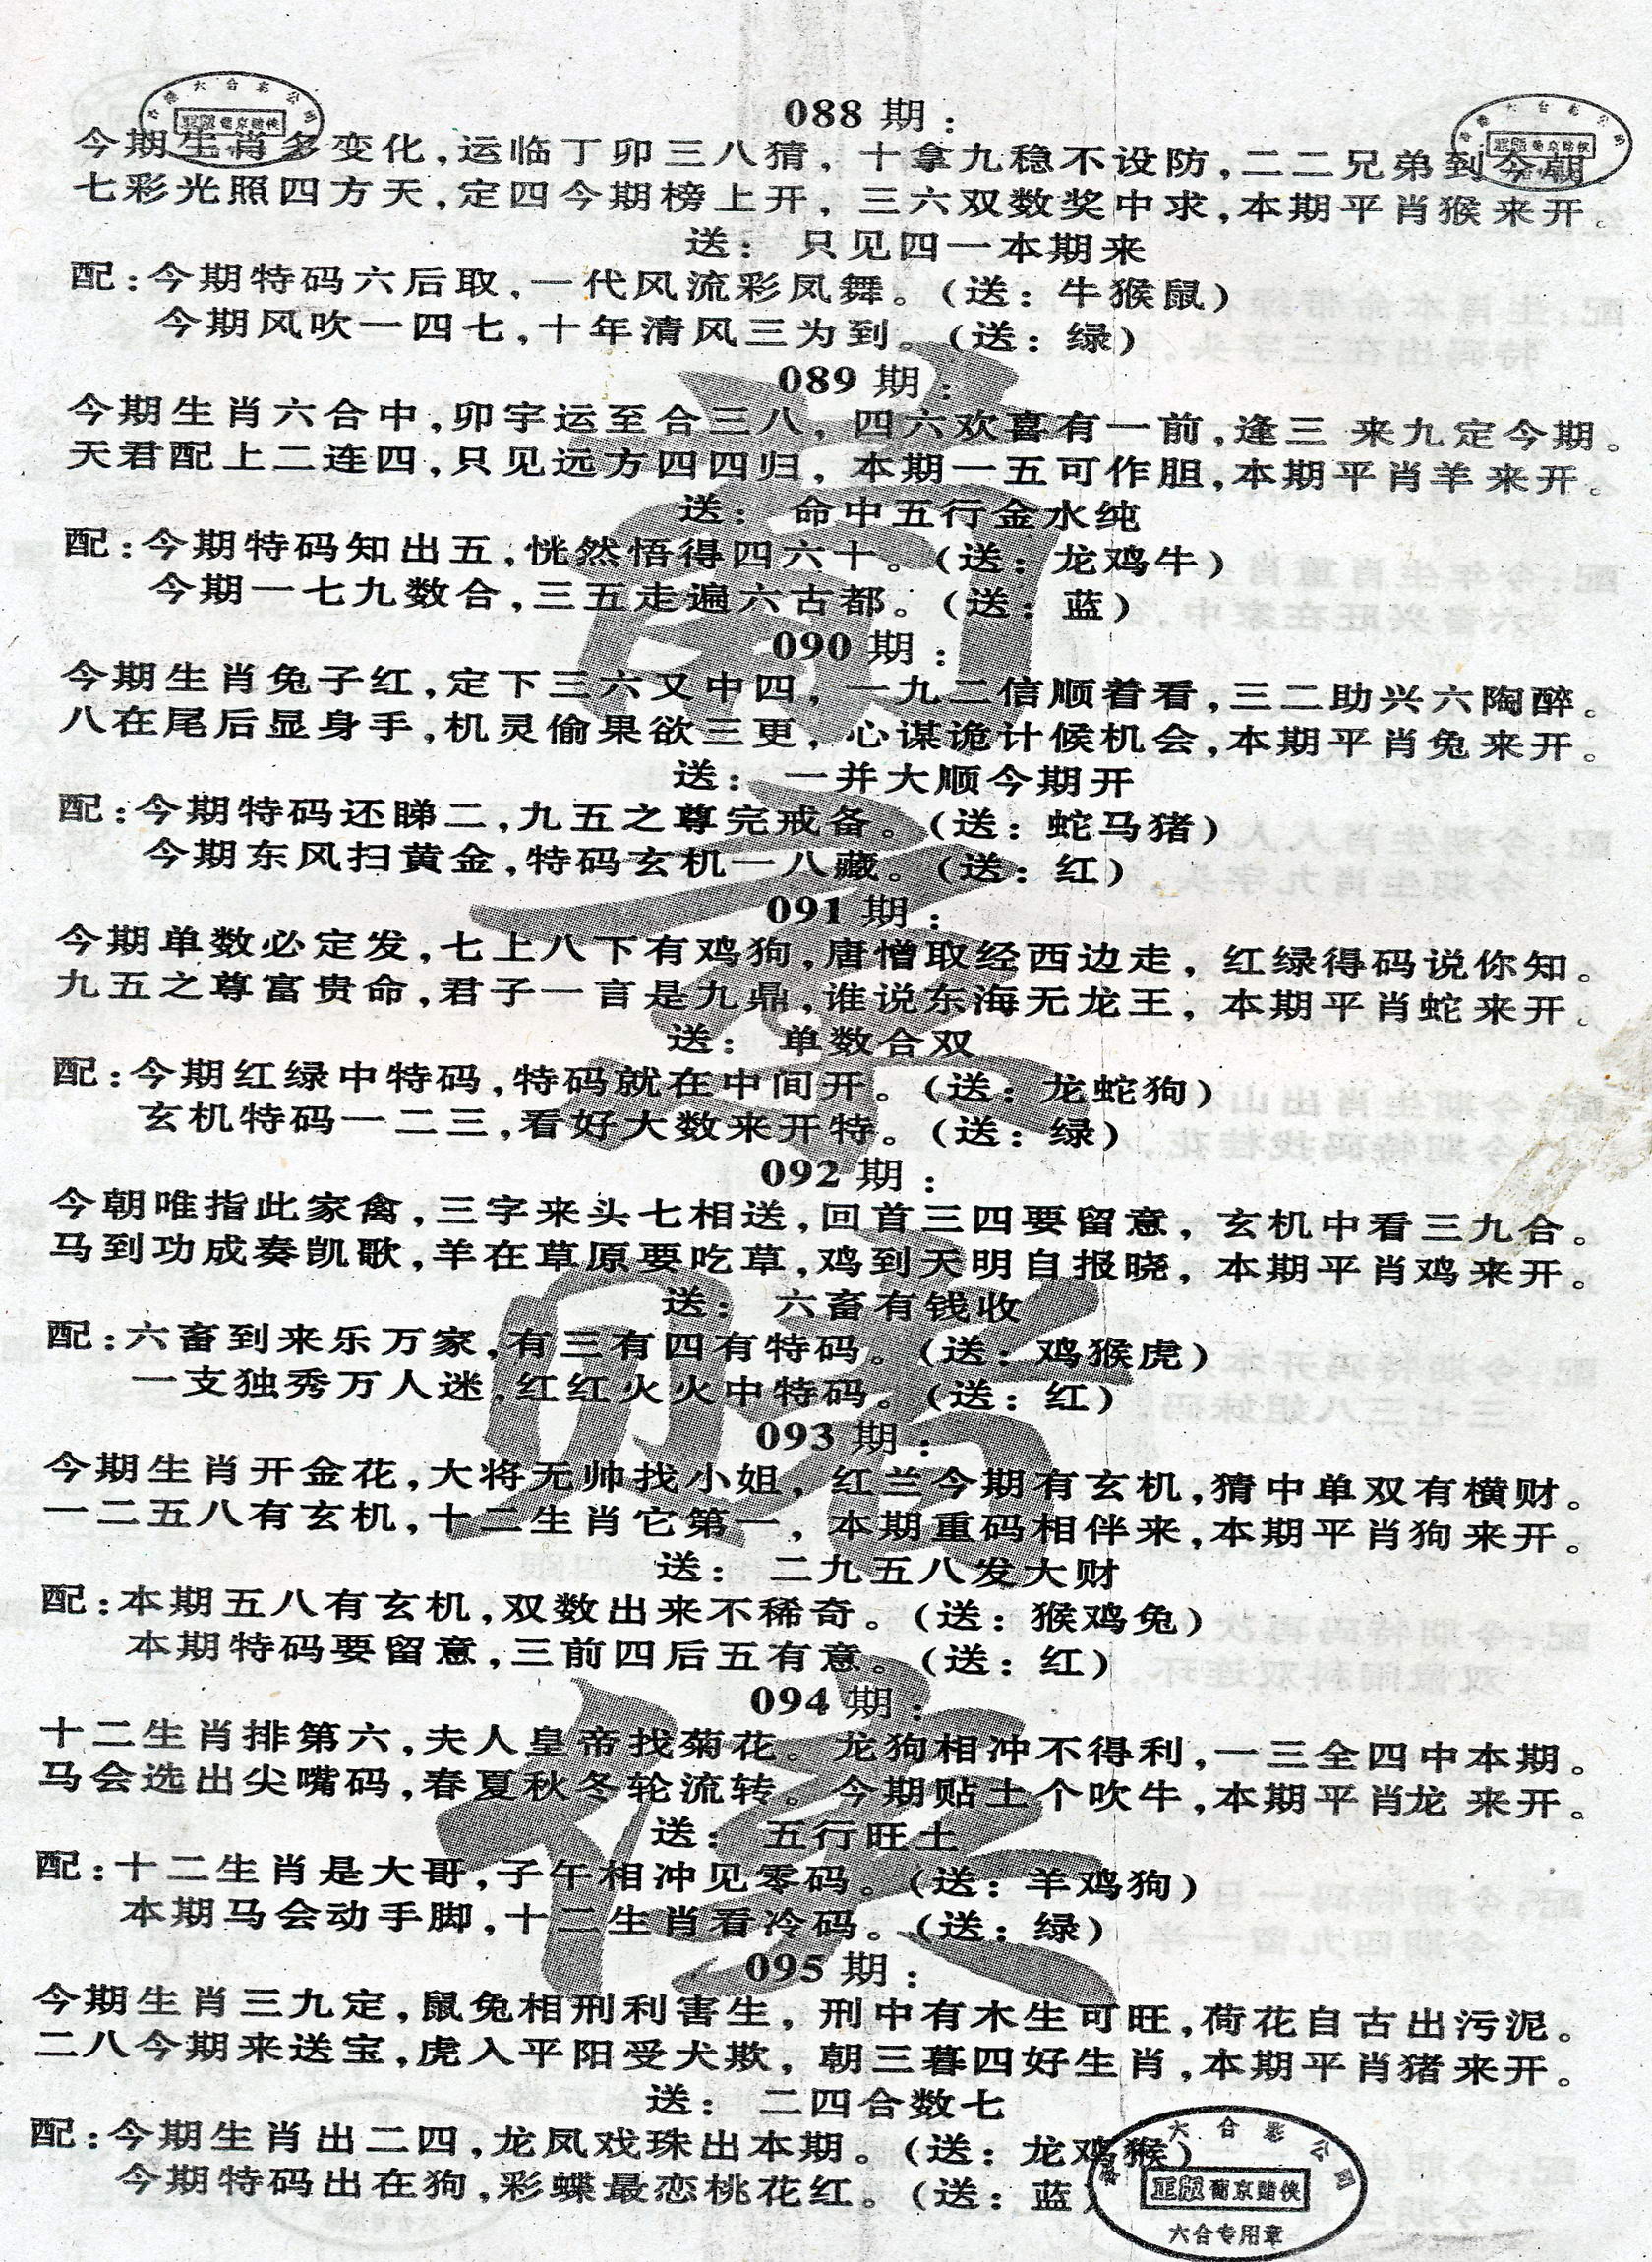 088 期：
今期生肖多变化，运临丁卯三八猜，十拿九稳不设防，二二兄弟到今朝
七彩光照四方天，定四今期榜上开，三六双数奖中求，本期平肖猴来开。
送： 只见四一本期来
配：今期特码六后取，一代风流彩凤舞。（送：牛猴鼠）
今期风吹一四七，十年清风三为到。（送：绿）
089 期：
今期生肖六合中，卯宇运至合三八，四六欢喜有一前，逢三 来九定今期。
天君配上二连四，只见远方四四归，本期一五可作胆，本期平肖羊来开。
送： 命中五行金水纯
配：今期特码知出五，恍然悟得四六十。（送：龙鸡牛）
今期一七九数合，三五走遍六古都。（送：蓝）
090 期：
今期生肖兔子红，定下三六又中四，一九二信顺着看，三二助兴六陶醉。
八在尾后显身手，机灵偷果欲三更，心谋诡计候机会，本期平肖兔来开。
送： 一并大顺今期开
配：今期特码还睇二，九五之尊完戒备。（送：蛇马猪）
今期东风扫黄金，特码玄机一八藏。（送：红）
091 期：
今期单数必定发，七上八下有鸡狗，唐憎取经西边走，红绿得码说你知。
九五之尊富贵命，君子一言是九鼎，谁说东海无龙王，本期平肖蛇来开。
送： 单数合双
配：今期红绿中特码，特码就在中间开。（送：龙蛇狗）
玄机特码一二三，看好大数来开特。（送：绿）
092 期：
今朝唯指此家禽，三字来头七相送，回首三四要留意，玄机中看三九合。
马到功成奏凯歌，羊在草原要吃草，鸡到天明自报晓，本期平肖鸡来开。
送： 六畜有钱收
配：六畜到来乐万家，有三有四有特码。（送：鸡猴虎）
一支独秀万人迷，红红火火中特码。（送：红）
093 期：
今期生肖开金花，大将无帅找小姐，红兰今期有玄机，猜中单双有横财。
一二五八有玄机，十二生肖它第一，本期重码相伴来，本期平肖狗来开。
送： 二九五八发大财
配：本期五八有玄机，双数出来不稀奇。（送：猴鸡兔）
本期特码要留意，三前四后五有意。（送：红）
094 期：
十二生肖排第六，夫人皇帝找菊花。龙狗相冲不得利，一三全四中本期。
马会选出尖嘴码，春夏秋冬轮流转。今期贴土个吹牛，本期平肖龙 来开。
送： 五行旺土
配：十二生肖是大哥，子午相冲见零码。（送：羊鸡狗）
本期马会动手脚，十二生肖看冷码。（送：绿）
095 期：
今期生肖三九定，鼠兔相刑利害生，刑中有木生可旺，荷花自古出污泥。
二八今期来送宝，虎入平阳受犬欺，朝三暮四好生肖，本期平肖猪来开。
送： 二四合数七
配：今期生肖出二四，龙凤戏珠出本期。（送：龙鸡猴）
今期特码出在狗，彩蝶最恋桃花红。（送：蓝）
六合彩公司
正版葡京赌侠
六合专用章